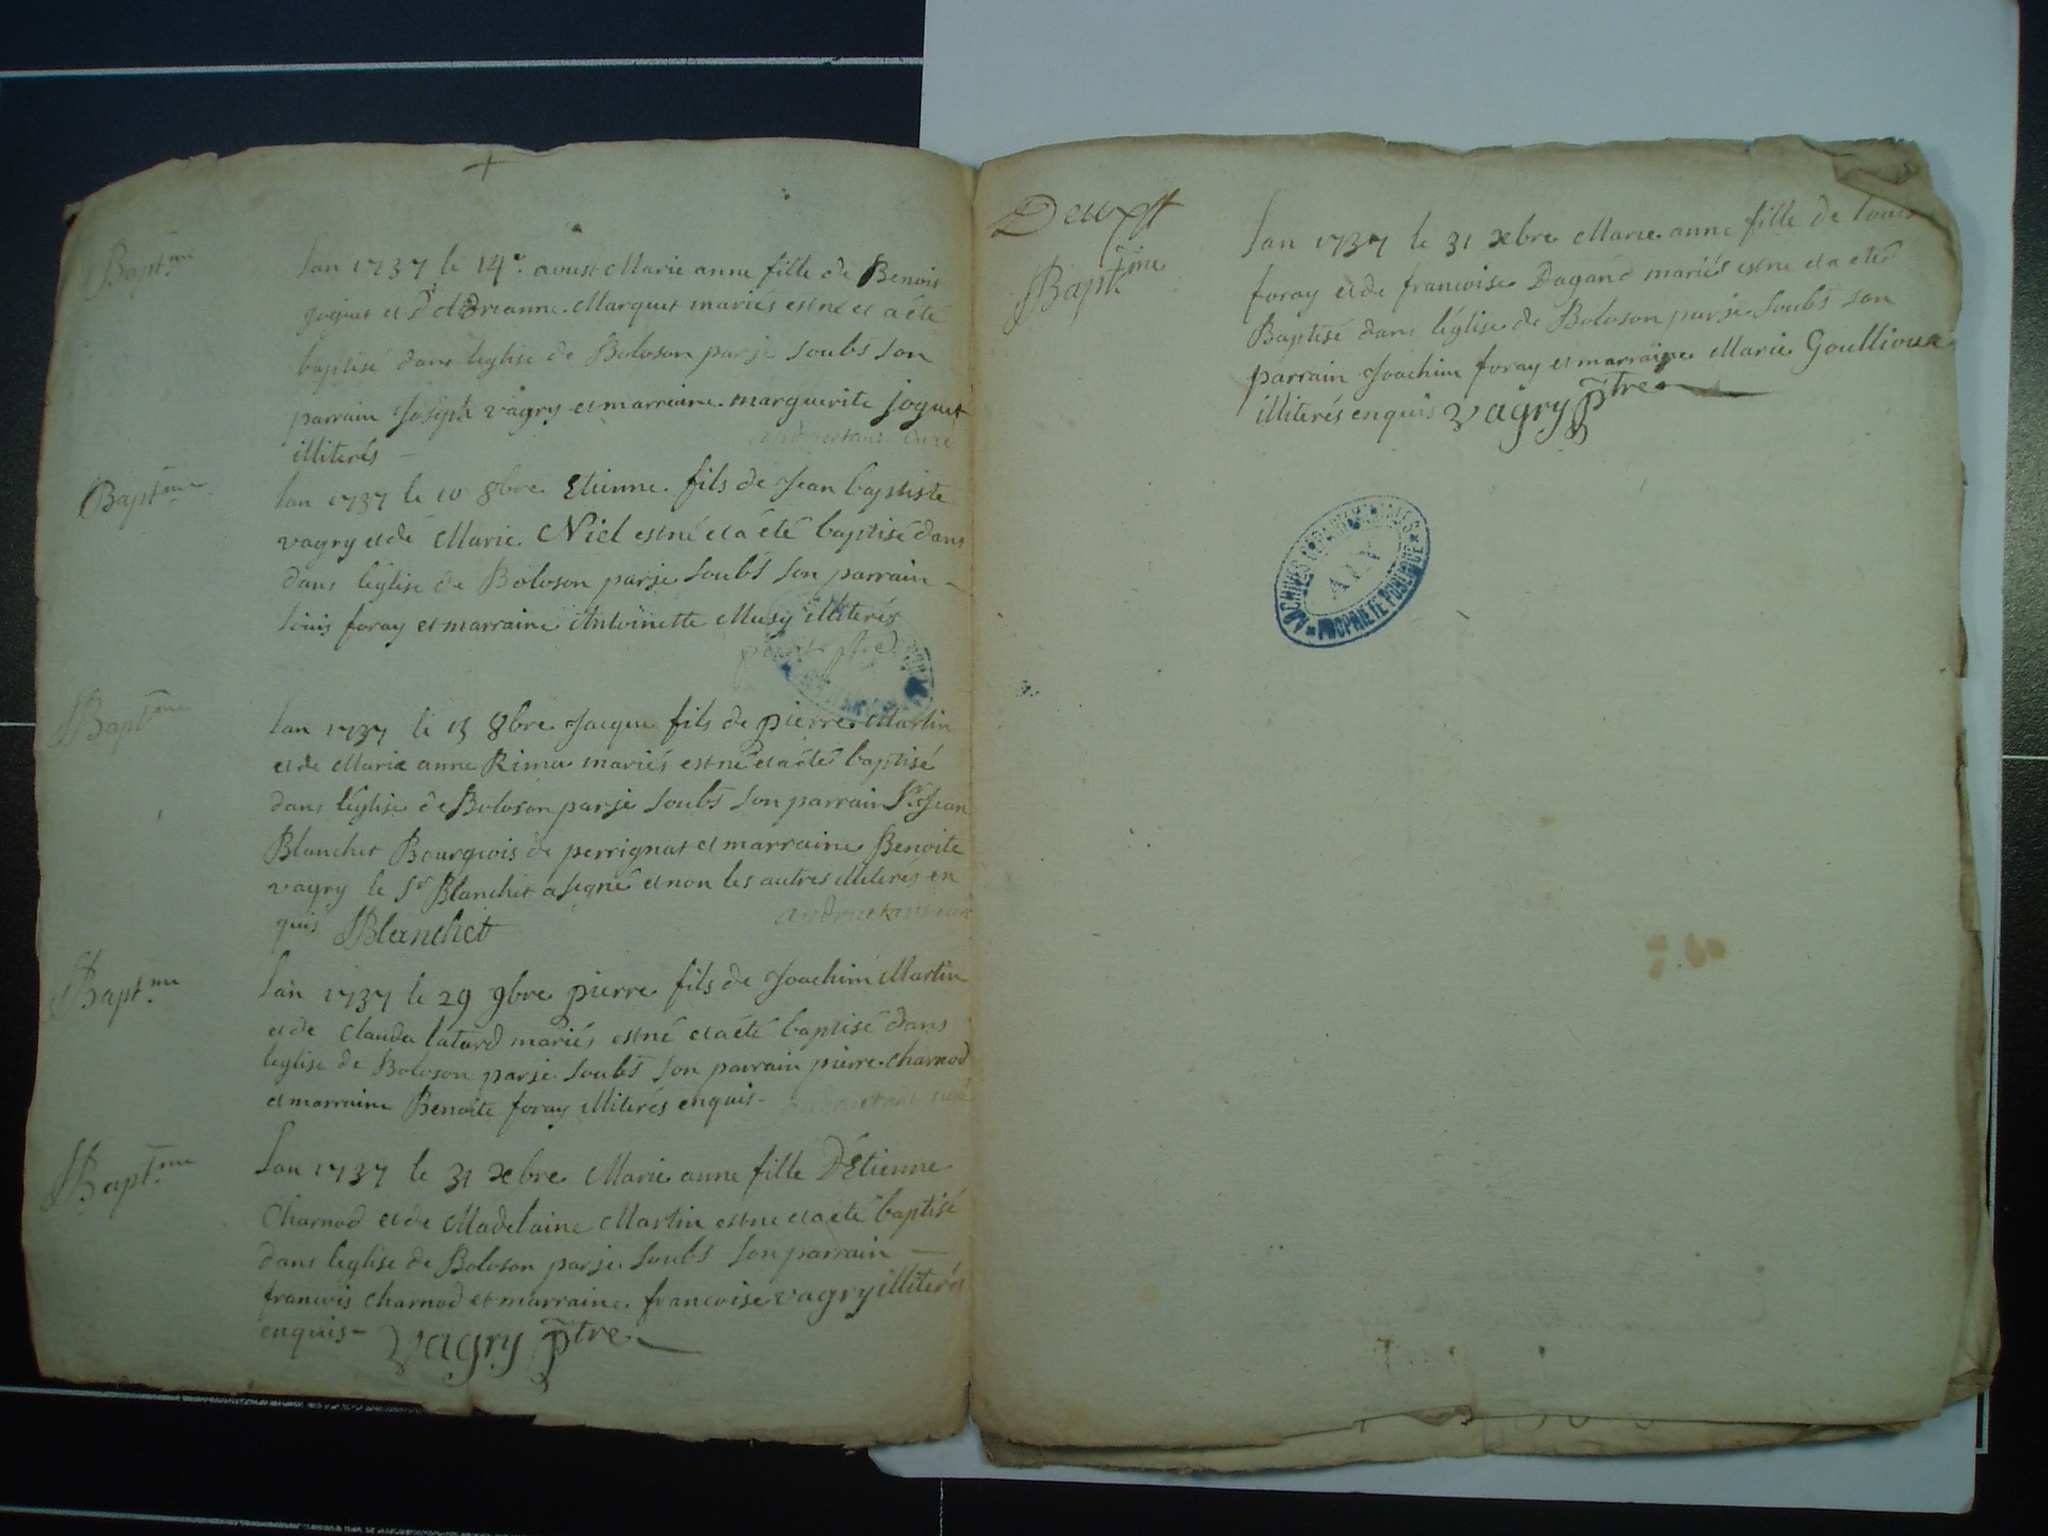 Bapt.me
Lan 1737 le 14e. aoust Marie anne fille de Benois
joguet et d'Adrianne Marquet mariés est né et a été
baptisé dans leglise de Boloson par je soubs son
parrain Joseph vagry et marreine marguerite joguet
illiterés
Bapt.me
Lan 1737 le 10 8bre Etienne fils de Jean baptiste
vagry et de Marie Niel est né et a été baptisé dans
dans léglise de Boloson par je soubs son parrain
Louis foray et marraine Antoinette Musy illiterés
Bapt.me
Lan 1737 le 15 8bre Jacque fils de pierre Martin
et de Marie anne Rima mariés est né et a été baptisé
dans léglise de Boloson par je soubs son parrain Sr. Jean
Blanchet Bourgeois de perrignat et marraine Benoite
vagry le Sr Blanchet a signé et non les autres illiterés en
quis Blanchet
Bapt.me
Lan 1737 le 29 9bre pierre fils de Joachim Martin
et de Clauda latard mariés est né et a été baptisé dans
leglise de Boloson par je soubs son parrain pierre charnod
et marraine Benoite foray illiterés enquis
Bapt.me
Lan 1737 le 31 xbre Marie anne fille D'Etienne
Charnod et de Madelaine Martin est ne et a eté baptisé
dans leglise de Boloson par je soubs son parrain
francois charnod et marraine francoise vagry illiterés
enquis vagry ptre
Bapt.me
Lan 1737 le 31 xbre Marie anne fille de Louis
foray et de francoise Dagand mariés est ne et a eté
Baptisé dans léglise de Boloson par je soubs son
parrain Joachim foray et marraine Marie Goullioux
illiterés enquis vagry ptre
ARCHIVES DEPARTEMENTALES
AIN
PROPRIETE PUBLIQUE